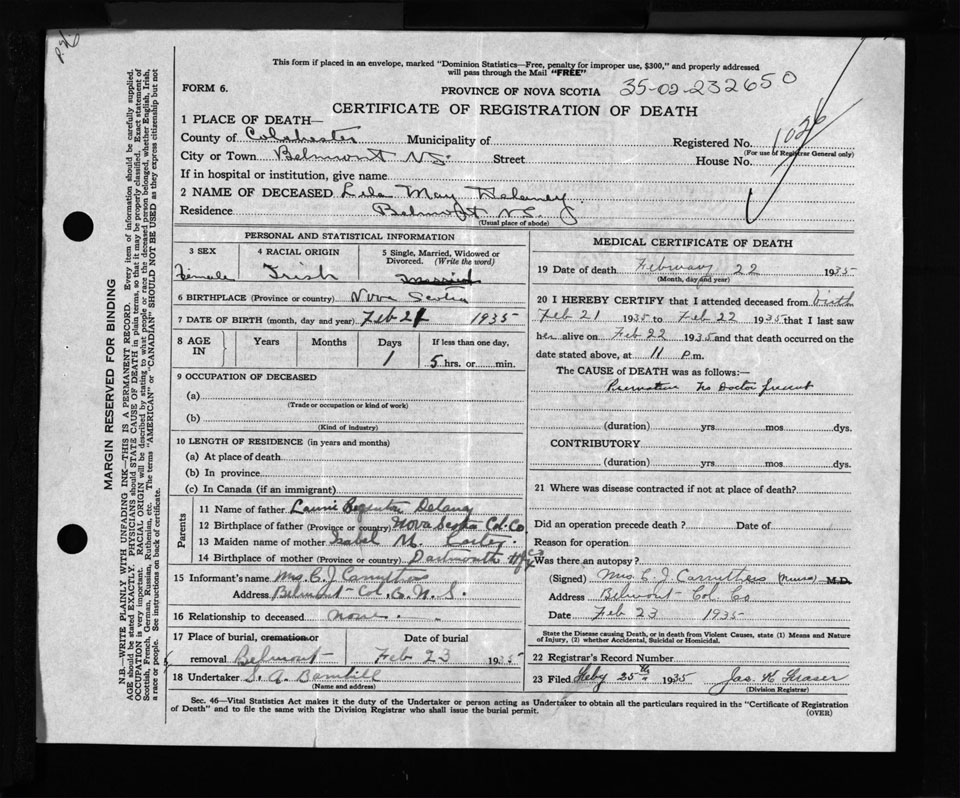 This form if placed in an envelope, marked "Dominion Statistics—Free, penalty for improper use, $300," and properly addressed
will pass through the Mail "FREE"
FORM 6.
PROVINCE OF NOVA SCOTIA 35-02-232650
CERTIFICATE OF REGISTRATION OF DEATH
1 PLACE OF DEATH—
County of Colchester Municipality of Registered No. 1026
(For use of Registrar General only)
City or Town Belmont N.S. Street House No.
If in hospital or institution, give name
2 NAME OF DECEASED Lela May Delaney
Residence Belmont N.S.
(Usual place of abode)
PERSONAL AND STATISTICAL INFORMATION
3 SEX 4 RACIAL ORIGIN 5 Single, Married, Widowed or
Divorced. (Write the word)
Female Irish
6 BIRTHPLACE (Province or country) Nova Scotia
7 DATE OF BIRTH (month, day and year) Feb 21 1935
8 AGE IN Years Months Days If less than one day,
1 5 hrs. or min.
9 OCCUPATION OF DECEASED
(a)
(Trade or occupation or kind of work)
(b)
(Kind of industry)
10 LENGTH OF RESIDENCE (in years and months)
(a) At place of death
(b) In province
(c) In Canada (if an immigrant)
Parents
11 Name of father Laurie Delaney
12 Birthplace of father (Province or country) Nova Scotia Col. Co
13 Maiden name of mother Isabel M.
14 Birthplace of mother (Province or country) Dartmouth
15 Informant's name Mrs. C. J. Carruthers
Address Belmont Col. Co N. S.
16 Relationship to deceased none
17 Place of burial, cremation or Date of burial
removal Belmont Feb 23 1935
18 Undertaker
(Name and address)
MEDICAL CERTIFICATE OF DEATH
19 Date of death February 22 1935
(Month, day and year)
20 I HEREBY CERTIFY that I attended deceased from birth
Feb 21 1935 to Feb 22 1935 that I last saw
her alive on Feb 22 1935 and that death occurred on the
date stated above, at 11 p.m.
The CAUSE of DEATH was as follows:—
Premature No Doctor present
(duration) yrs mos dys.
CONTRIBUTORY
(duration) yrs mos dys.
21 Where was disease contracted if not at place of death?
Did an operation precede death? Date of
Reason for operation
Was there an autopsy?
(Signed) Mrs. C. J. Carruthers (Nurse) M.D.
Address Belmont Col. Co
Date Feb 23 1935
State the Disease causing Death, or in death from Violent Causes, state (1) Means and Nature
of Injury, (2) whether Accidental, Suicidal or Homicidal.
22 Registrar's Record Number
23 Filed Feby 25th 1935 Jas. K Fraser
(Division Registrar)
Sec. 46—Vital Statistics Act makes it the duty of the Undertaker or person acting as Undertaker to obtain all the particulars required in the "Certificate of Registration
of Death" and to file the same with the Division Registrar who shall issue the burial permit.
(OVER)
MARGIN RESERVED FOR BINDING
N.B.—WRITE PLAINLY WITH UNFADING INK—THIS IS A PERMANENT RECORD. Every item of information should be carefully supplied.
AGE should be stated EXACTLY. PHYSICIANS should STATE CAUSE OF DEATH in plain terms, so that it may be properly classified. Exact statement of
OCCUPATION is very important. RACIAL ORIGIN will be described by stating to what people or race the deceased person belonged, whether English, Irish,
Scottish, French, German, Russian, Ruthenian, etc. The terms "AMERICAN" or "CANADIAN" SHOULD NOT BE USED as they express citizenship but not
a race or people. See instructions on back of certificate.